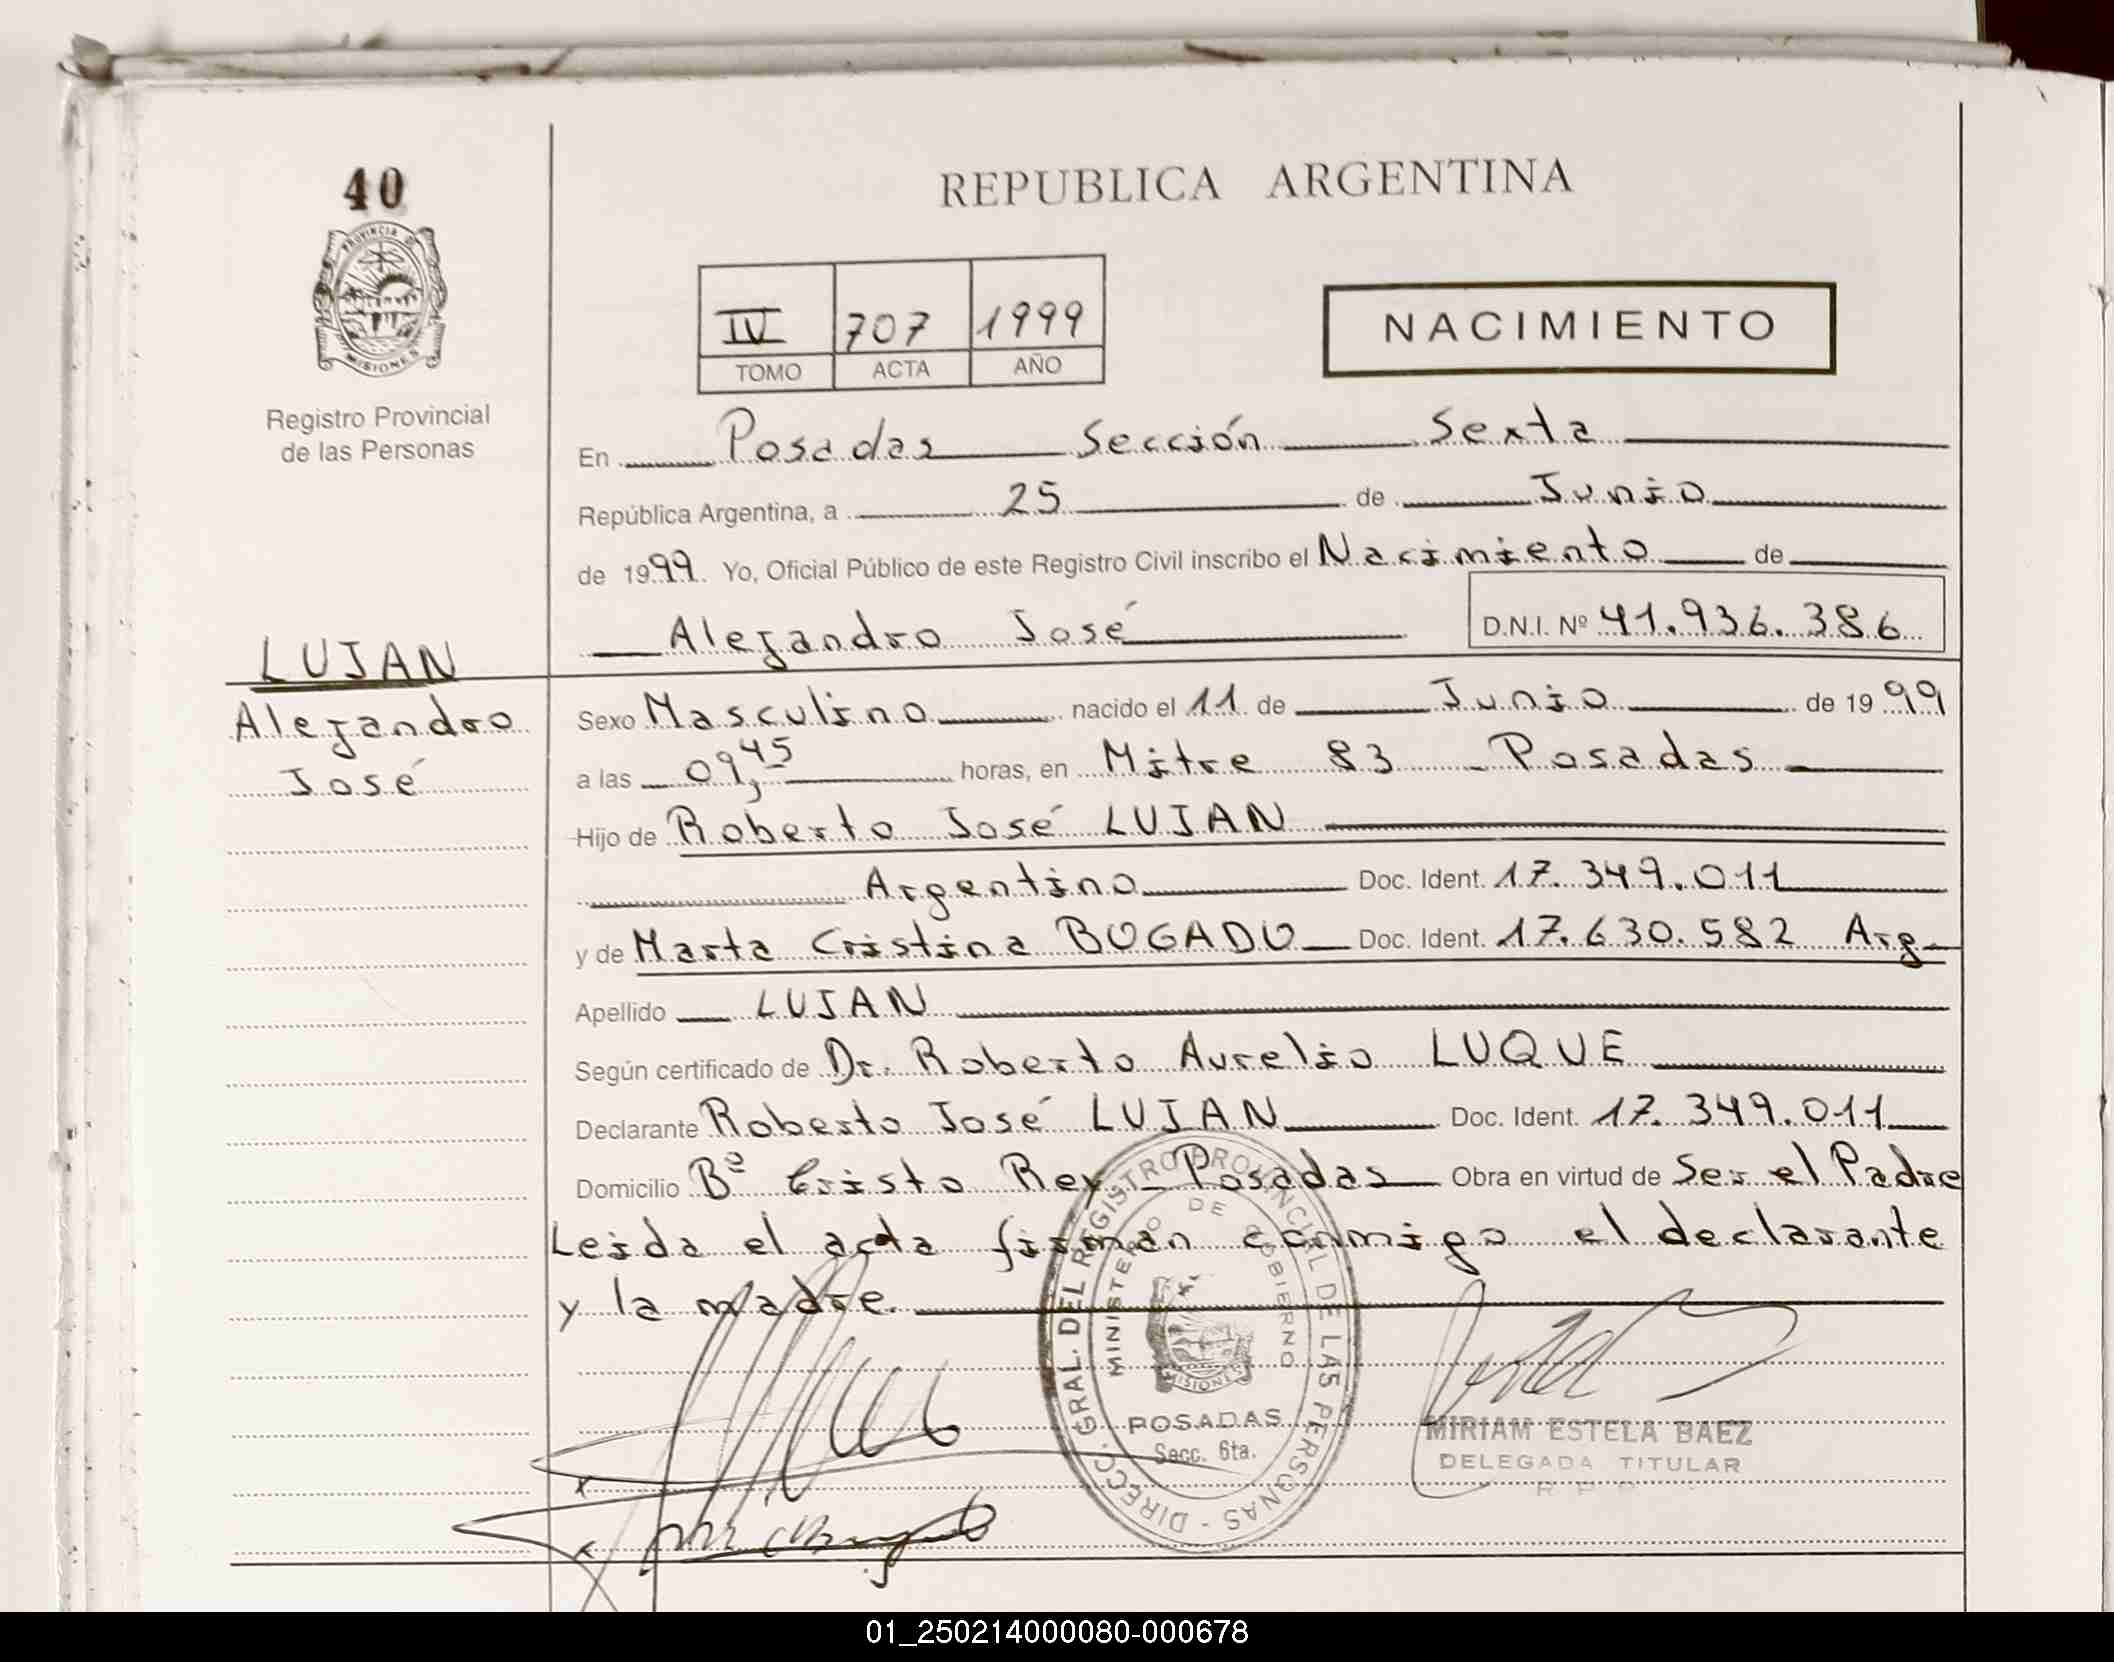 40
PROVINCIA DE
MISIONES
Registro Provincial
de las Personas
REPUBLICA ARGENTINA
IV 707 1999
TOMO ACTA AÑO
NACIMIENTO
En Posadas Sección Sexta
República Argentina, a 25 de Junio
de 1999. Yo, Oficial Público de este Registro Civil inscribo el Nacimiento de
Alejandro José D.N.I. Nº 41.936.386
LUJAN
Alejandro
José
Sexo Masculino nacido el 11 de Junio de 1999
a las 09,45 horas, en Mitre 83 - Posadas
Hijo de Roberto José LUJAN
Argentino Doc. Ident. 17.349.011
y de Marta Cristina BOGADO Doc. Ident. 17.630.582 Arg
Apellido LUJAN
Según certificado de Dr. Roberto Aurelio LUQUE
Declarante Roberto José LUJAN Doc. Ident. 17.349.011
Domicilio Bº Cristo Rey - Posadas Obra en virtud de Ser el Padre
Leida el acta firman conmigo el declarante
y la madre.
DIRECC. GRAL. DEL REGISTRO PROVINCIAL DE LAS PERSONAS -
MINISTERIO DE GOBIERNO
MISIONES
POSADAS
Secc. 6ta.
MIRIAM ESTELA BAEZ
DELEGADA TITULAR
01_250214000080-000678